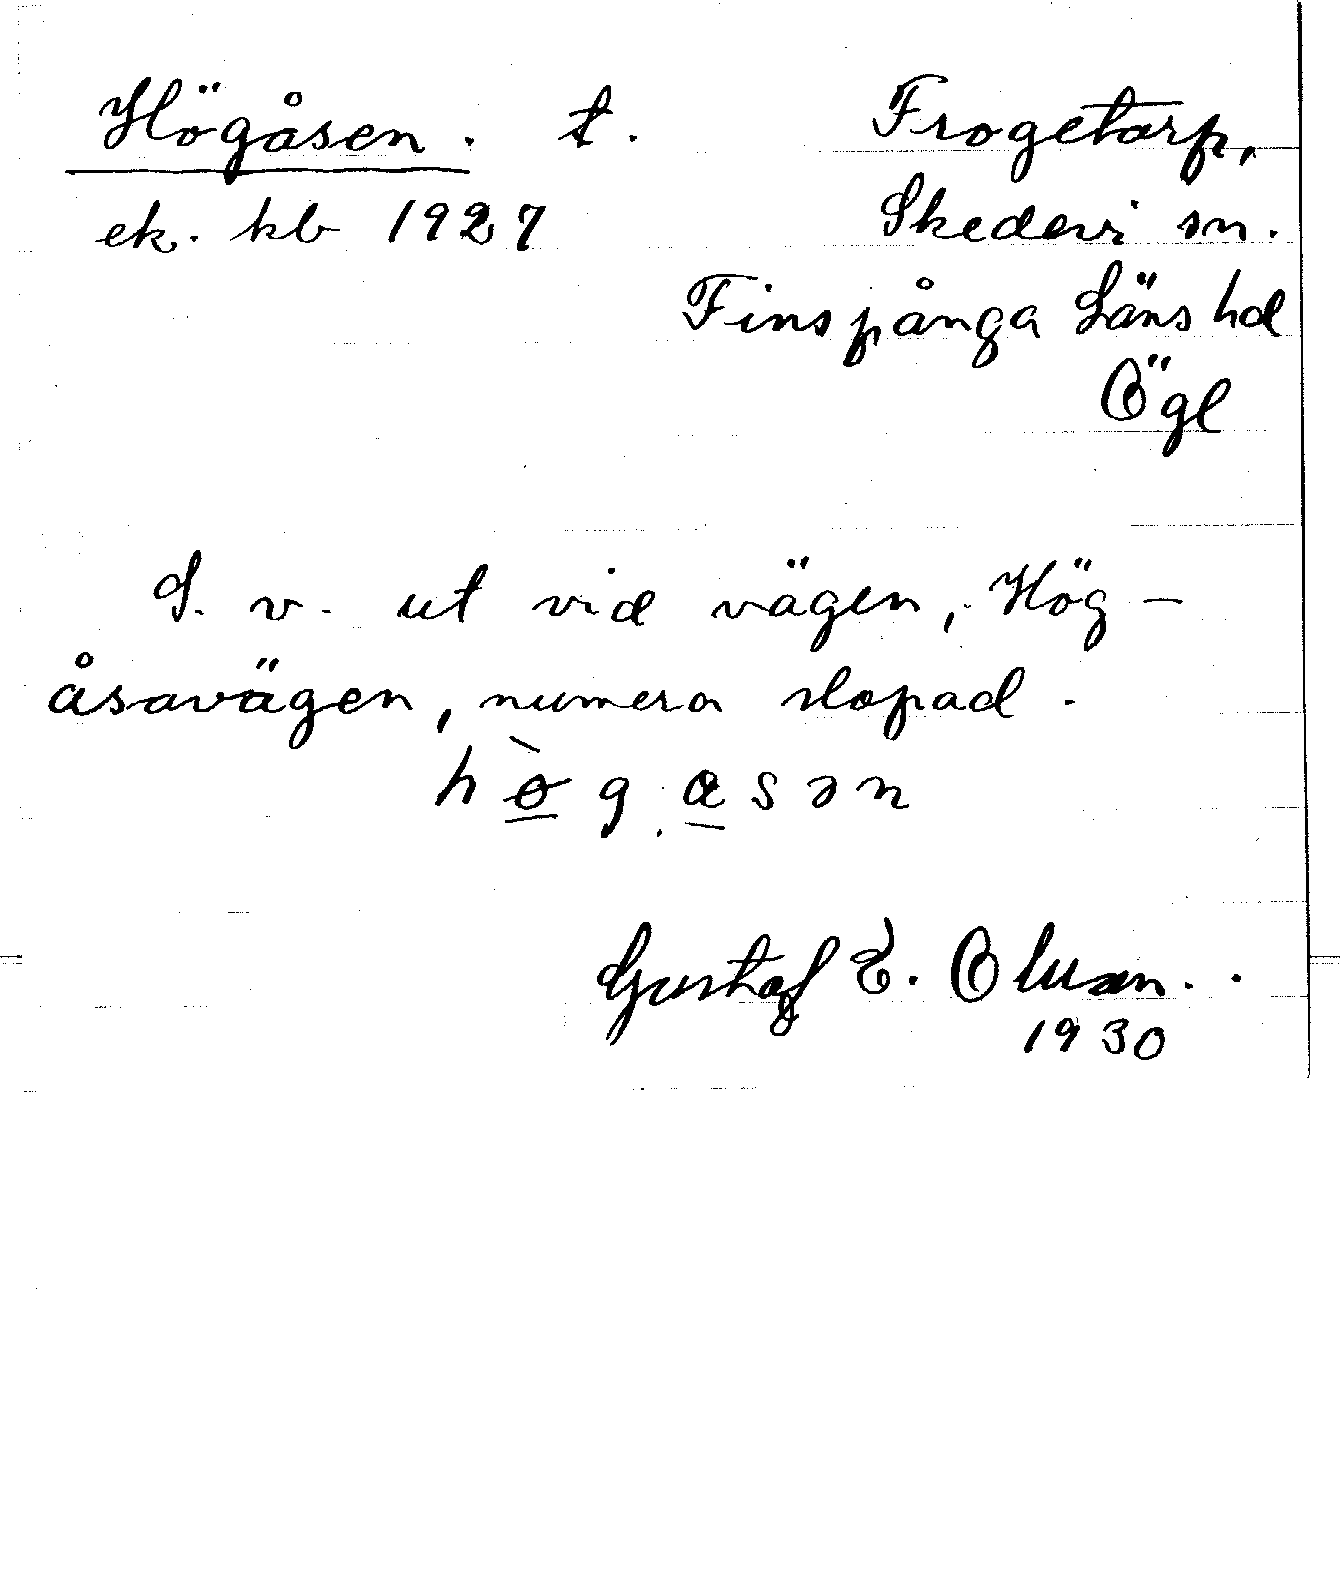 Högåsen. t. Frogetorp,
ek. kb 1927 Skedevi sn.
Finspånga Läns hd
Ögl
S. v. ut vid vägen, Hög-
åsavägen, numera slopad.
Gustaf E. Oluson.
1930